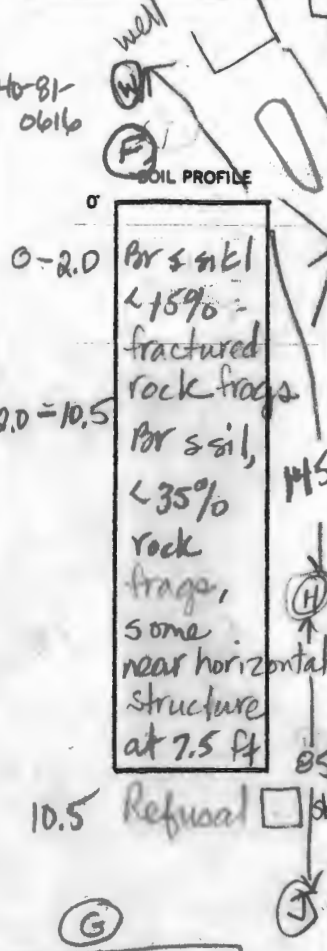 well
W
Ho-81-
0616
F
SOIL PROFILE
0'
0-2.0 Br s sikl
<15%
fractured
rock frags
2.0-10.5 Br s sil,
<35%
rock
frags,
some
near horizontal
structure
at 7.5 ft
10.5 Refusal
145
H
85
G
J